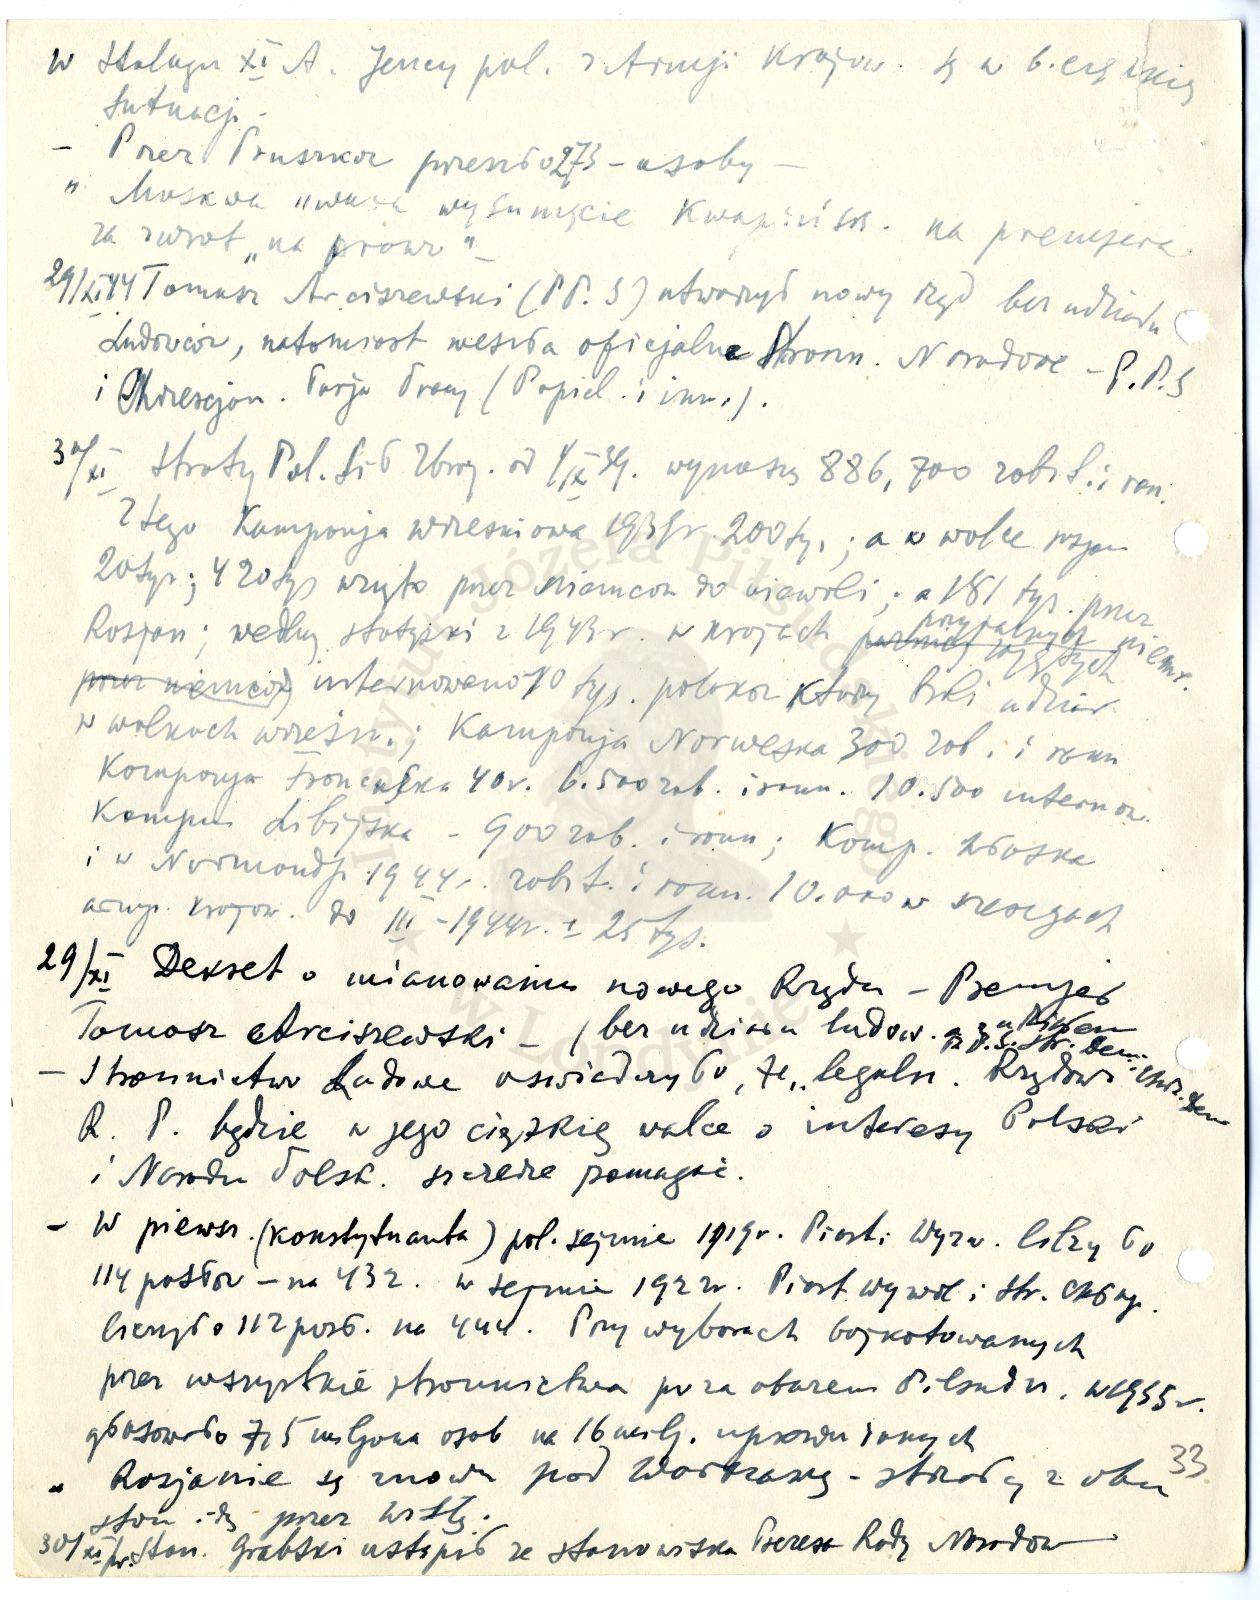 w Stalagu XI A. Jency pol. z Armji Krajow. są w b. ciężkiej
sytuacji.
- Przez Pruszków przeszło 273 - osoby -
" Moskwa "uważa wysunięcie Kwapińsk. na premjera
za zwrot „na prawo"-
29/XI 44 Tomasz Arciszewski (P.P.S) utworzył nowy rząd bez udziału
Ludowców, natomiast weszła oficjalne Stronn. Narodowe - P.P.S
i Chrzescjan. Partja Pracy (Popiel. i inn.).
30/XI straty Pol. Sił Zbroj. od 1/IX 39. wynoszą 886,700 zabit. i ran.
z tego Kampanja wrześniowa 1939r. 200 ty.; a w walce
20 tys; 420 tys wzięto przez niemców do niewoli; a 181 tys. przez
Rosjan; według statyski z 1943r. w krajach przyjętych niem.
przez niemców internowano tys. polaków którzy brali udział
w walkach wrześn.; Kampanja Norweska 300 zab. i rann
Kampanja Francuska 40r. 6.500 zab. i rann. 10.500 internow.
Kampan Libijska - 900 zab. i rann; Komp. włoska
i w Normandji 1944r. zabit. i rann. 10.000 w szeregach
armji. krajow. do III - 1944r. ± 25 tys.
29/XI Dekret o mianowaniu nowego Rządu - Premjer
Tomasz Arciszewski - (bez udziału ludow. P.P.S. Str. Chrz. Dem
- Stronnictwo Ludowe oświadczyło, że „legaln. Rządowi
R. P. będzie w jego ciężkiej walce o interesy Polski
i Narodu Polsk. szczerze pomagać.
- W pierwsz. (konstytuanta) pol. sejmie 1919r. Piast i Wyzw. liczyło
114 posłów - na 432. w sejmie 1922r. Piast. wyzwol i str. chłop.
liczyło 112 pos. na 444. Przy wyborach bojkotowanych
przez wszystkie stronnictwa poza obozem Piłsudz. w 1935r.
głosowało 7,5 miljona osób na 16 milj. uprawnionych
" Rosjanie są znowu pod Warszawą - strzały z obu
stron idą przez Wisłę.
30/XI pr. Stan. Grabski ustąpił ze stanowiska Prezesa Rady Narodow
33
Instytut Józefa Piłsudskiego
w Londynie